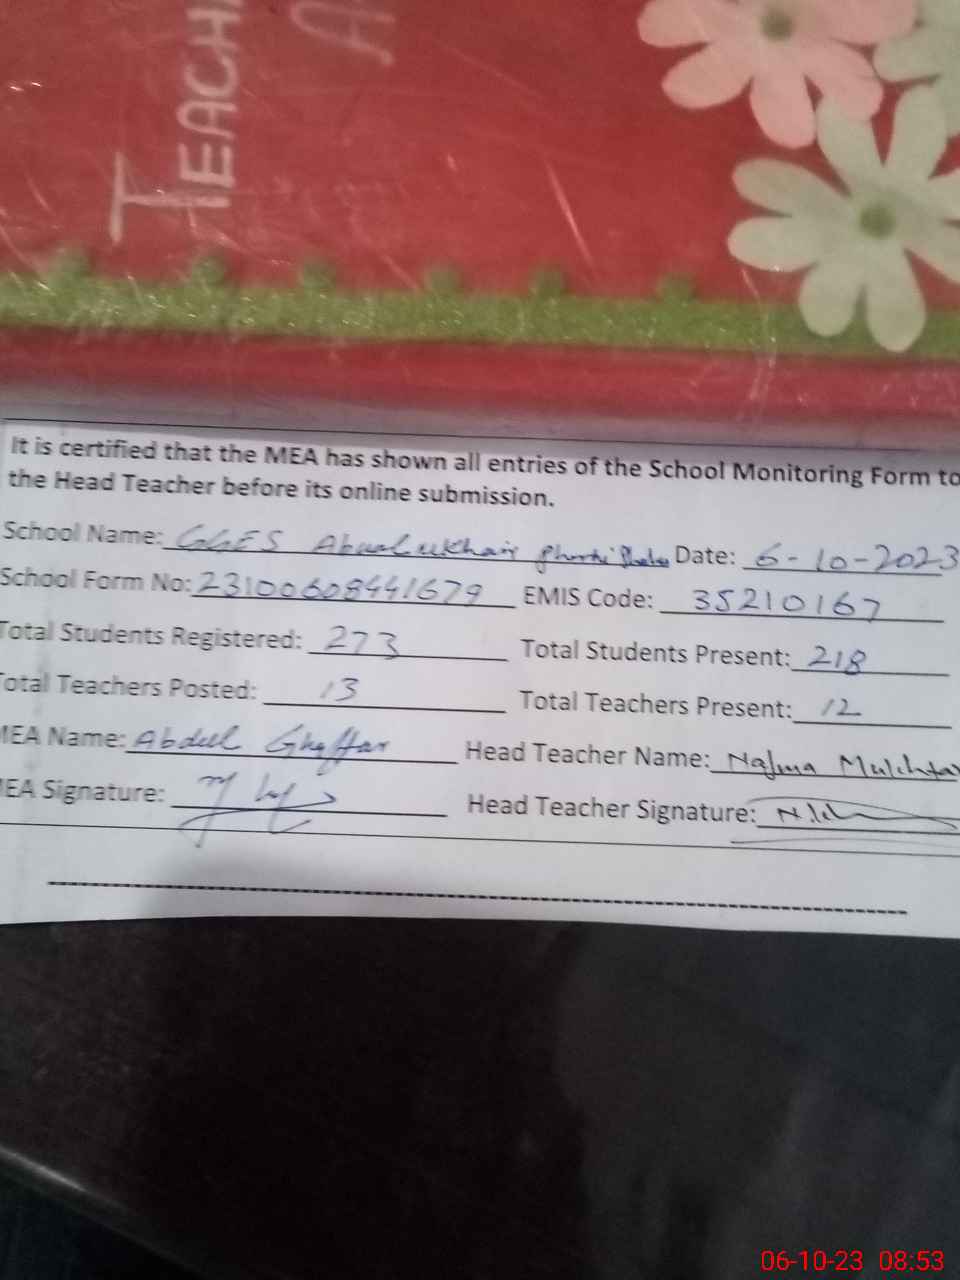 TEACH
A
It is certified that the MEA has shown all entries of the School Monitoring Form to
the Head Teacher before its online submission.
School Name: GGES Date: 6-10-2023
School Form No: 23100608441679 EMIS Code: 35210167
Total Students Registered: 273 Total Students Present: 218
Total Teachers Posted: 13 Total Teachers Present: 12
MEA Name: Abdul Ghaffar Head Teacher Name: Najma Mukhtar
MEA Signature: Head Teacher Signature:
06-10-23 08:53